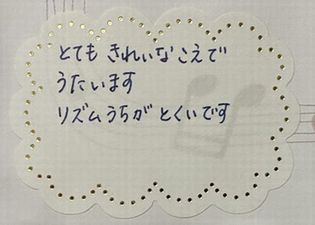 とても きれいなこえで
うたいます
リズムうちが とくいです